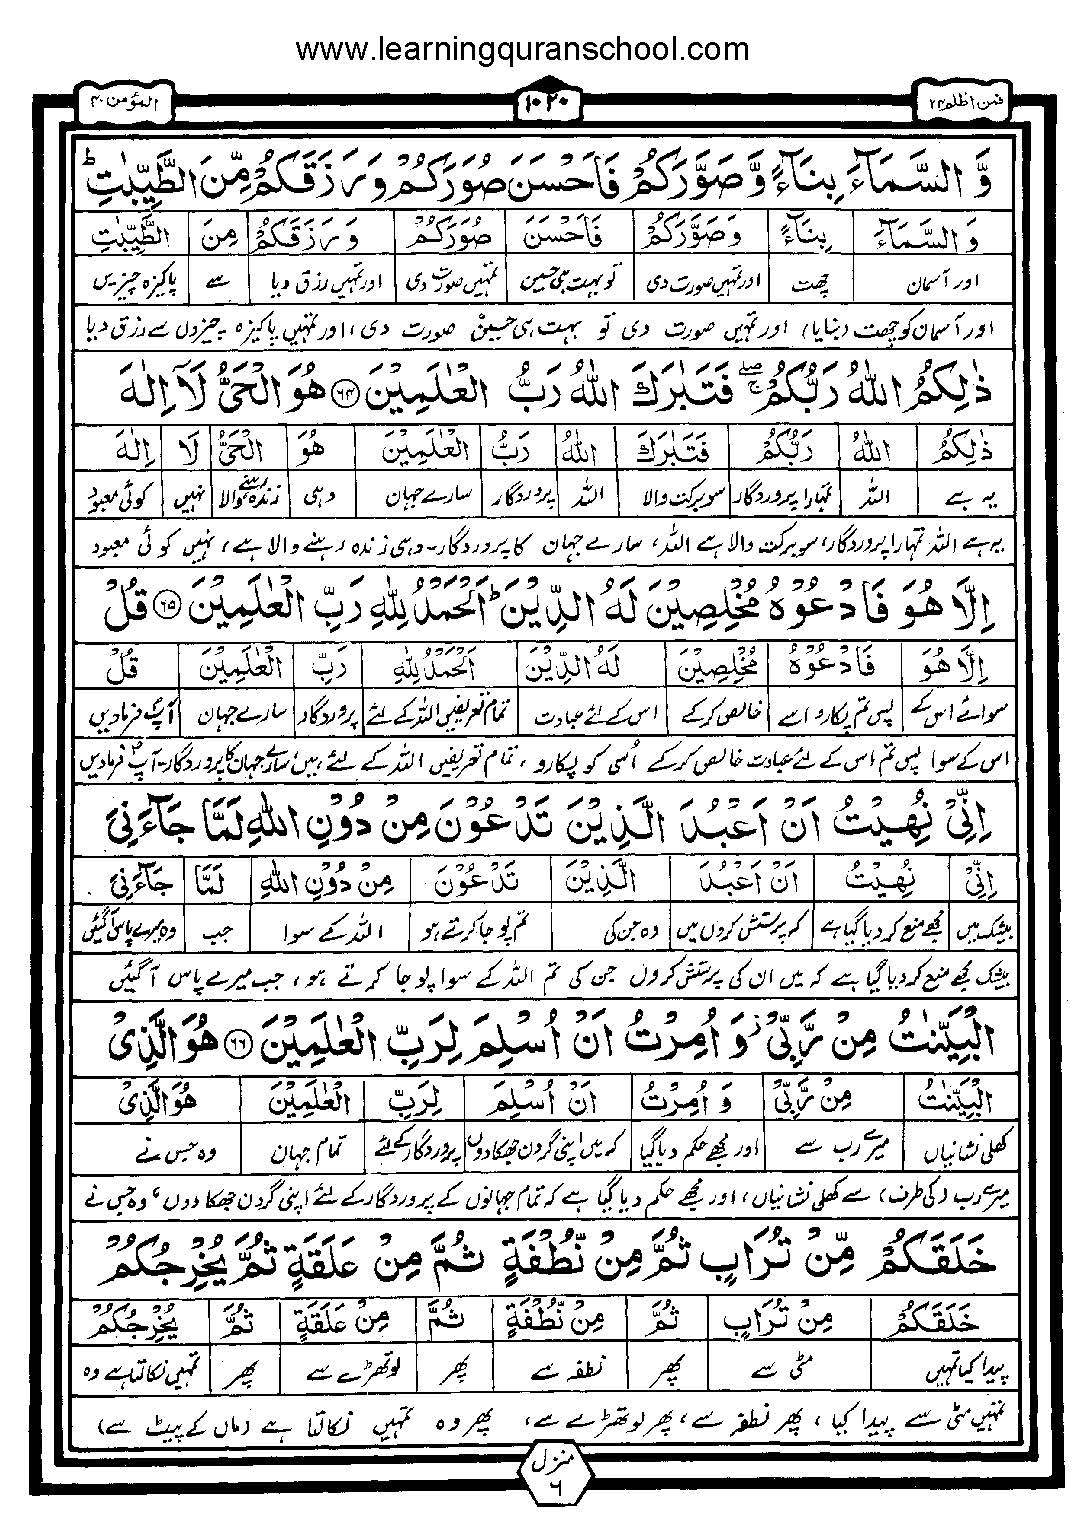 www.learningquranschool.com
المؤمن ٤٠
١٠٢٠
فمن اظلم ٢٤
وَّ السَّمَآءَ بِنَآءً وَّ صَوَّرَكُمْ فَاَحْسَنَ صُوَرَكُمْ وَ رَزَقَكُمْ مِّنَ الطَّيِّبٰتِ ؕ
وَ السَّمَآءَ بِنَآءً وَ صَوَّرَكُمْ فَاَحْسَنَ صُوَرَكُمْ وَ رَزَقَكُمْ مِنَ الطَّيِّبٰتِ
اور آسمان چھت اور تمہیں صورت دی تو بہت ہی حسین تمہیں صورت دی اور تمہیں رزق دیا سے پاکیزہ چیزیں
اور آسمان کو چھت (بنایا) اور تمہیں صورت دی تو بہت ہی حسین صورت دی، اور تمہیں پاکیزہ چیزوں سے رزق دیا
ذٰلِكُمُ اللّٰهُ رَبُّكُمْ ۖۚ فَتَبٰرَكَ اللّٰهُ رَبُّ الْعٰلَمِيْنَ ﴿٦٤﴾ هُوَ الْحَيُّ لَاۤ اِلٰهَ
ذٰلِكُمُ اللّٰهُ رَبُّكُمْ فَتَبٰرَكَ اللّٰهُ رَبُّ الْعٰلَمِيْنَ هُوَ الْحَيُّ لَاۤ اِلٰهَ
یہ ہے اللہ تمہارا پروردگار سو برکت والا اللہ پروردگار سارے جہان وہی زندہ رہنے والا نہیں کوئی معبود
یہ ہے اللہ تمہارا پروردگار، سو برکت والا ہے اللہ، سارے جہان کا پروردگار۔ وہی زندہ رہنے والا ہے، نہیں کوئی معبود
اِلَّا هُوَ فَادْعُوْهُ مُخْلِصِيْنَ لَهُ الدِّيْنَ ؕ اَلْحَمْدُ لِلّٰهِ رَبِّ الْعٰلَمِيْنَ ﴿٦٥﴾ قُلْ
اِلَّا هُوَ فَادْعُوْهُ مُخْلِصِيْنَ لَهُ الدِّيْنَ اَلْحَمْدُ لِلّٰهِ رَبِّ الْعٰلَمِيْنَ قُلْ
سوائے اس کے پس تم پکارو اسے خالص کرکے اس کے لئے عبادت تمام تعریفیں اللہ کے لئے پروردگار سارے جہان آپؐ فرمادیں
اس کے سوا پس تم اس کے لئے عبادت خالص کرکے اُسی کو پکارو، تمام تعریفیں اللہ کے لئے ہیں سارے جہان کا پروردگار۔ آپؐ فرمادیں
اِنِّيْ نُهِيْتُ اَنْ اَعْبُدَ الَّذِيْنَ تَدْعُوْنَ مِنْ دُوْنِ اللّٰهِ لَمَّا جَآءَنِيَ
اِنِّيْ نُهِيْتُ اَنْ اَعْبُدَ الَّذِيْنَ تَدْعُوْنَ مِنْ دُوْنِ اللّٰهِ لَمَّا جَآءَنِيَ
بیشک میں مجھے منع کردیا گیا ہے کہ پرستش کروں میں وہ جن کی تم پوجا کرتے ہو اللہ کے سوا جب وہ میرے پاس آگئیں
بیشک مجھے منع کردیا گیا ہے کہ میں ان کی پرستش کروں جن کی تم اللہ کے سوا پوجا کرتے ہو، جب میرے پاس آگئیں
الْبَيِّنٰتُ مِنْ رَّبِّيْ ؗ وَ اُمِرْتُ اَنْ اُسْلِمَ لِرَبِّ الْعٰلَمِيْنَ ﴿٦٦﴾ هُوَ الَّذِيْ
الْبَيِّنٰتُ مِنْ رَّبِّيْ وَ اُمِرْتُ اَنْ اُسْلِمَ لِرَبِّ الْعٰلَمِيْنَ هُوَ الَّذِيْ
کھلی نشانیاں میرے رب سے اور مجھے حکم دیا گیا کہ میں اپنی گردن جھکادوں پروردگار کے لئے تمام جہان وہ جس نے
میرے رب (کی طرف) سے کھلی نشانیاں، اور مجھے حکم دیا گیا ہے کہ تمام جہانوں کے پروردگار کے لئے اپنی گردن جھکادوں، وہ جس نے
خَلَقَكُمْ مِّنْ تُرَابٍ ثُمَّ مِنْ نُّطْفَةٍ ثُمَّ مِنْ عَلَقَةٍ ثُمَّ يُخْرِجُكُمْ
خَلَقَكُمْ مِنْ تُرَابٍ ثُمَّ مِنْ نُطْفَةٍ ثُمَّ مِنْ عَلَقَةٍ ثُمَّ يُخْرِجُكُمْ
پیدا کیا تمہیں مٹی سے پھر نطفہ سے پھر لوتھڑے سے پھر تمہیں نکالتا ہے وہ
تمہیں مٹی سے پیدا کیا، پھر نطفہ سے، پھر لوتھڑے سے، پھر وہ تمہیں نکالتا ہے (ماں کے پیٹ سے)
منزل
٦